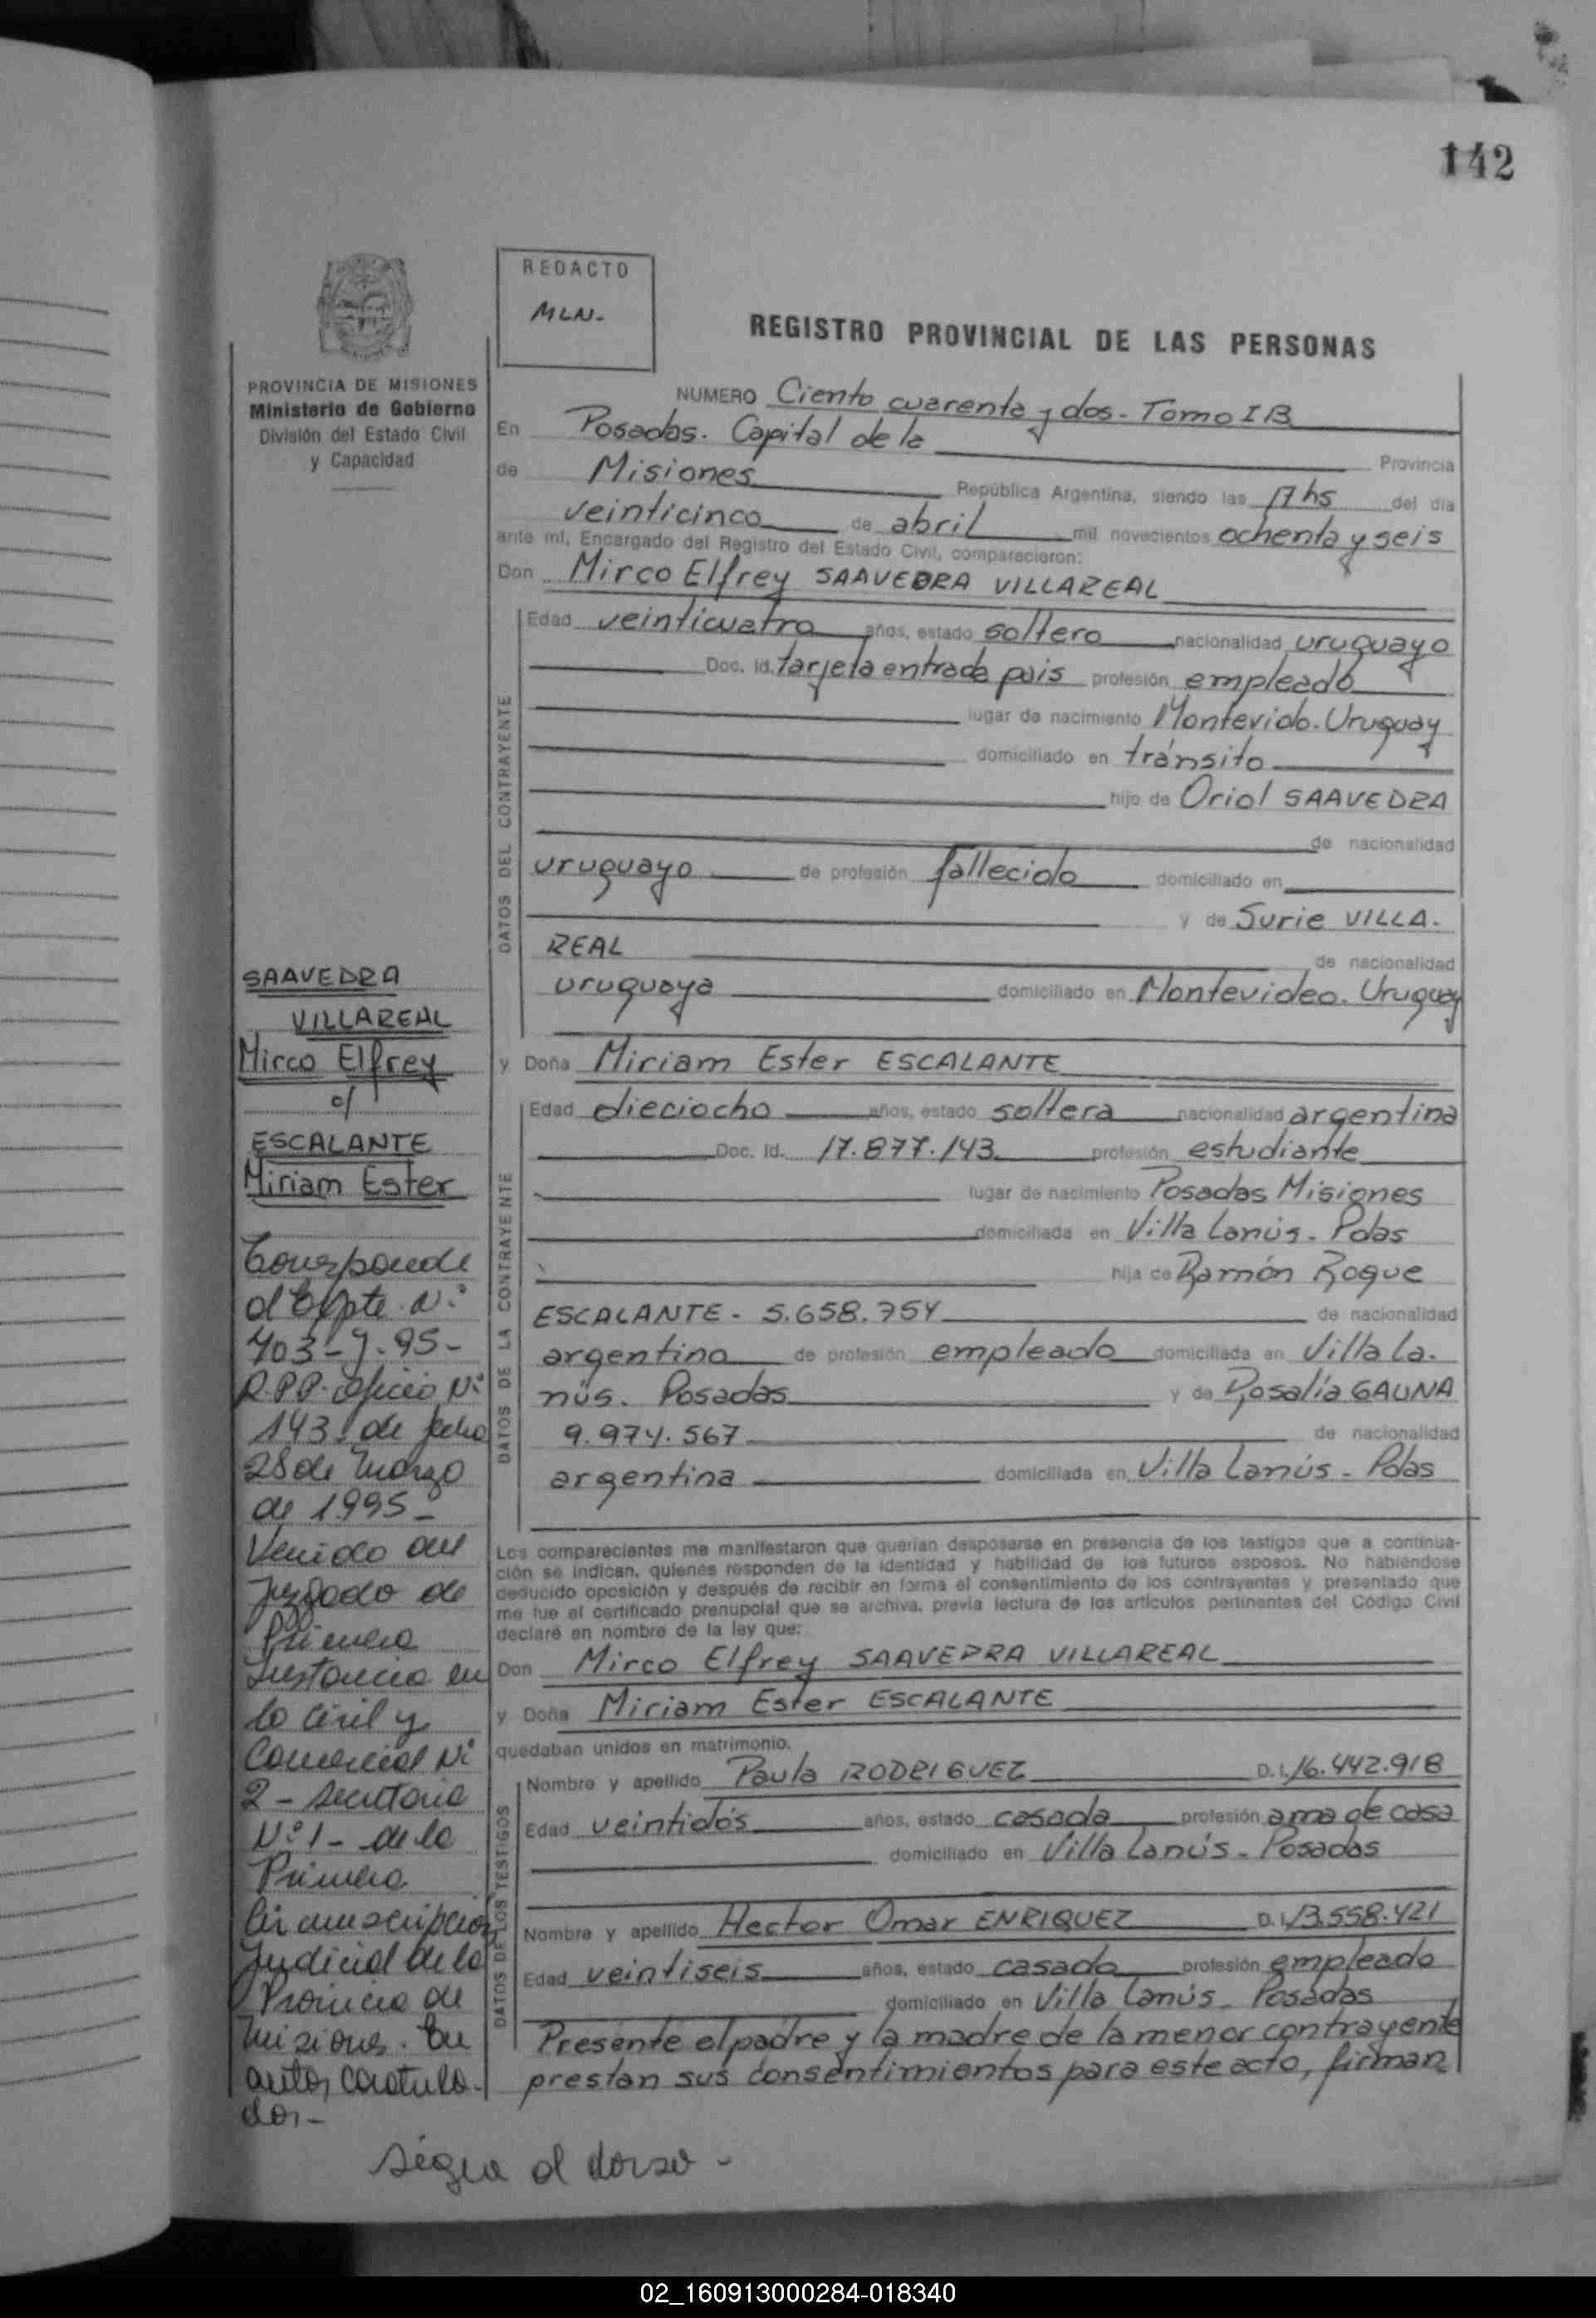 142
REDACTO
MLN.
REGISTRO PROVINCIAL DE LAS PERSONAS
PROVINCIA DE MISIONES
Ministerio de Gobierno
División del Estado Civil
y Capacidad
NUMERO Ciento cuarenta y dos - Tomo I B
En Posadas. Capital de la Provincia
de Misiones República Argentina, siendo las 17 hs del día
veinticinco de abril mil novecientos ochenta y seis
ante mí, Encargado del Registro del Estado Civil, comparecieron:
Don Mirco Elfrey SAAVEDRA VILLAREAL
DATOS DEL CONTRAYENTE
Edad veinticuatro años, estado soltero nacionalidad uruguayo
Doc. Id. tarjeta entrada pais profesión empleado
lugar de nacimiento Montevido. Uruguay
domiciliado en tránsito
hijo de Oriol SAAVEDRA
de nacionalidad
uruguayo de profesión fallecido domiciliado en
y de Surie VILLA-
REAL de nacionalidad
uruguaya domiciliado en Montevideo. Uruguay
y Doña Miriam Ester ESCALANTE
DATOS DE LA CONTRAYENTE
Edad dieciocho años, estado soltera nacionalidad argentina
Doc. Id. 17.877.143 profesión estudiante
lugar de nacimiento Posadas Misiones
domiciliada en Villa Lanús - Pdas
hija de Ramón Roque
ESCALANTE - 5.658.754 de nacionalidad
argentino de profesión empleado domiciliada en Villa La-
nús. Posadas y de Rosalía GAUNA
9.974.567 de nacionalidad
argentina domiciliada en Villa Lanús - Pdas
Los comparecientes me manifestaron que querían desposarse en presencia de los testigos que a continua-
ción se indican, quienes responden de la identidad y habilidad de los futuros esposos. No habiéndose
deducido oposición y después de recibir en forma el consentimiento de los contrayentes y presentado que
me fue el certificado prenupcial que se archiva, previa lectura de los artículos pertinentes del Código Civil
declaré en nombre de la ley que:
Don Mirco Elfrey SAAVEDRA VILLAREAL
y Doña Miriam Ester ESCALANTE
quedaban unidos en matrimonio.
DATOS DE LOS TESTIGOS
Nombre y apellido Paula RODRIGUEZ D.I. 16.442.918
Edad veintidós años, estado casada profesión ama de casa
domiciliado en Villa Lanús - Posadas
Nombre y apellido Hector Omar ENRIQUEZ D.I. 13.558.421
Edad veintiseis años, estado casado profesión empleado
domiciliado en Villa Lanús - Posadas
Presente el padre y la madre de la menor contrayente
prestan sus consentimientos para este acto, firman
SAAVEDRA
VILLAREAL
Mirco Elfrey
c/
ESCALANTE
Miriam Ester
Corresponde
al Expte. Nº
703 - 7 - 95 -
R.P.P. oficio Nº
143 - de fecha
28 de Marzo
de 1995 -
Venido del
Juzgado de
Primera
Instancia en
lo Civil y
Comercial Nº
2 - Secretaria
Nº 1 - de la
Primera
Circunscripcion
Judicial de la
Provincia de
Misiones. En
autos caratula-
dos -
Sigue al dorso -
02_160913000284-018340